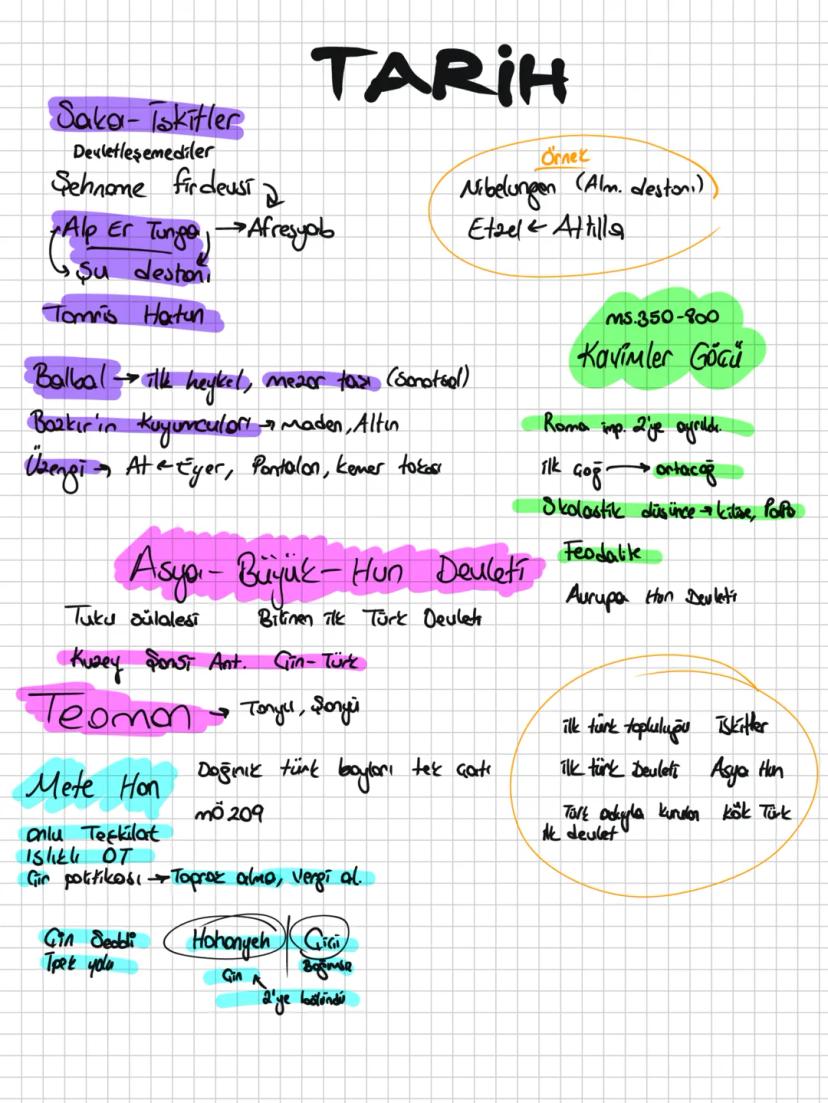 TARİH
Saka-İskitler
Devletleşemediler
Şehname firdevsi
Alp Er Tunga → Afresyab
Şu destanı
Tomris Hatun
Balbal → ilk heykel, mezar taşı (Sanatsal)
Bozkır'ın kuyumcuları → maden, Altın
Üzengi → At ← Eyer, Pantolon, kemer tokası
Örnek
Nibelungen (Alm. destanı)
Etzel ← Attilla
ms.350-800
Kavimler Göçü
Roma imp. 2'ye ayrıldı.
ilk çağ → ortaçağ
Skolastik düşünce → kilise, Papa
Feodalite
Avrupa Hun Devleti
Asya-Büyük-Hun Devleti
Tuku sülalesi Bilinen ilk Türk Devleti
Kuzey Şansi Ant. Çin-Türk
Teoman → Tanyu, Şanyü
Mete Han Dağınık türk boyları tek çatı
mÖ 209
onlu Teşkilat
ıslıklı OT
Çin politikası → Toprak alma, vergi al.
Çin Seddi
İpek yolu
Hohanyeh | Çiçi
Çin Bağımsız
2'ye bölündü
ilk türk topluluğu İskitler
ilk türk Devleti Asya Hun
Türk adıyla kurulan kök Türk
ilk devlet